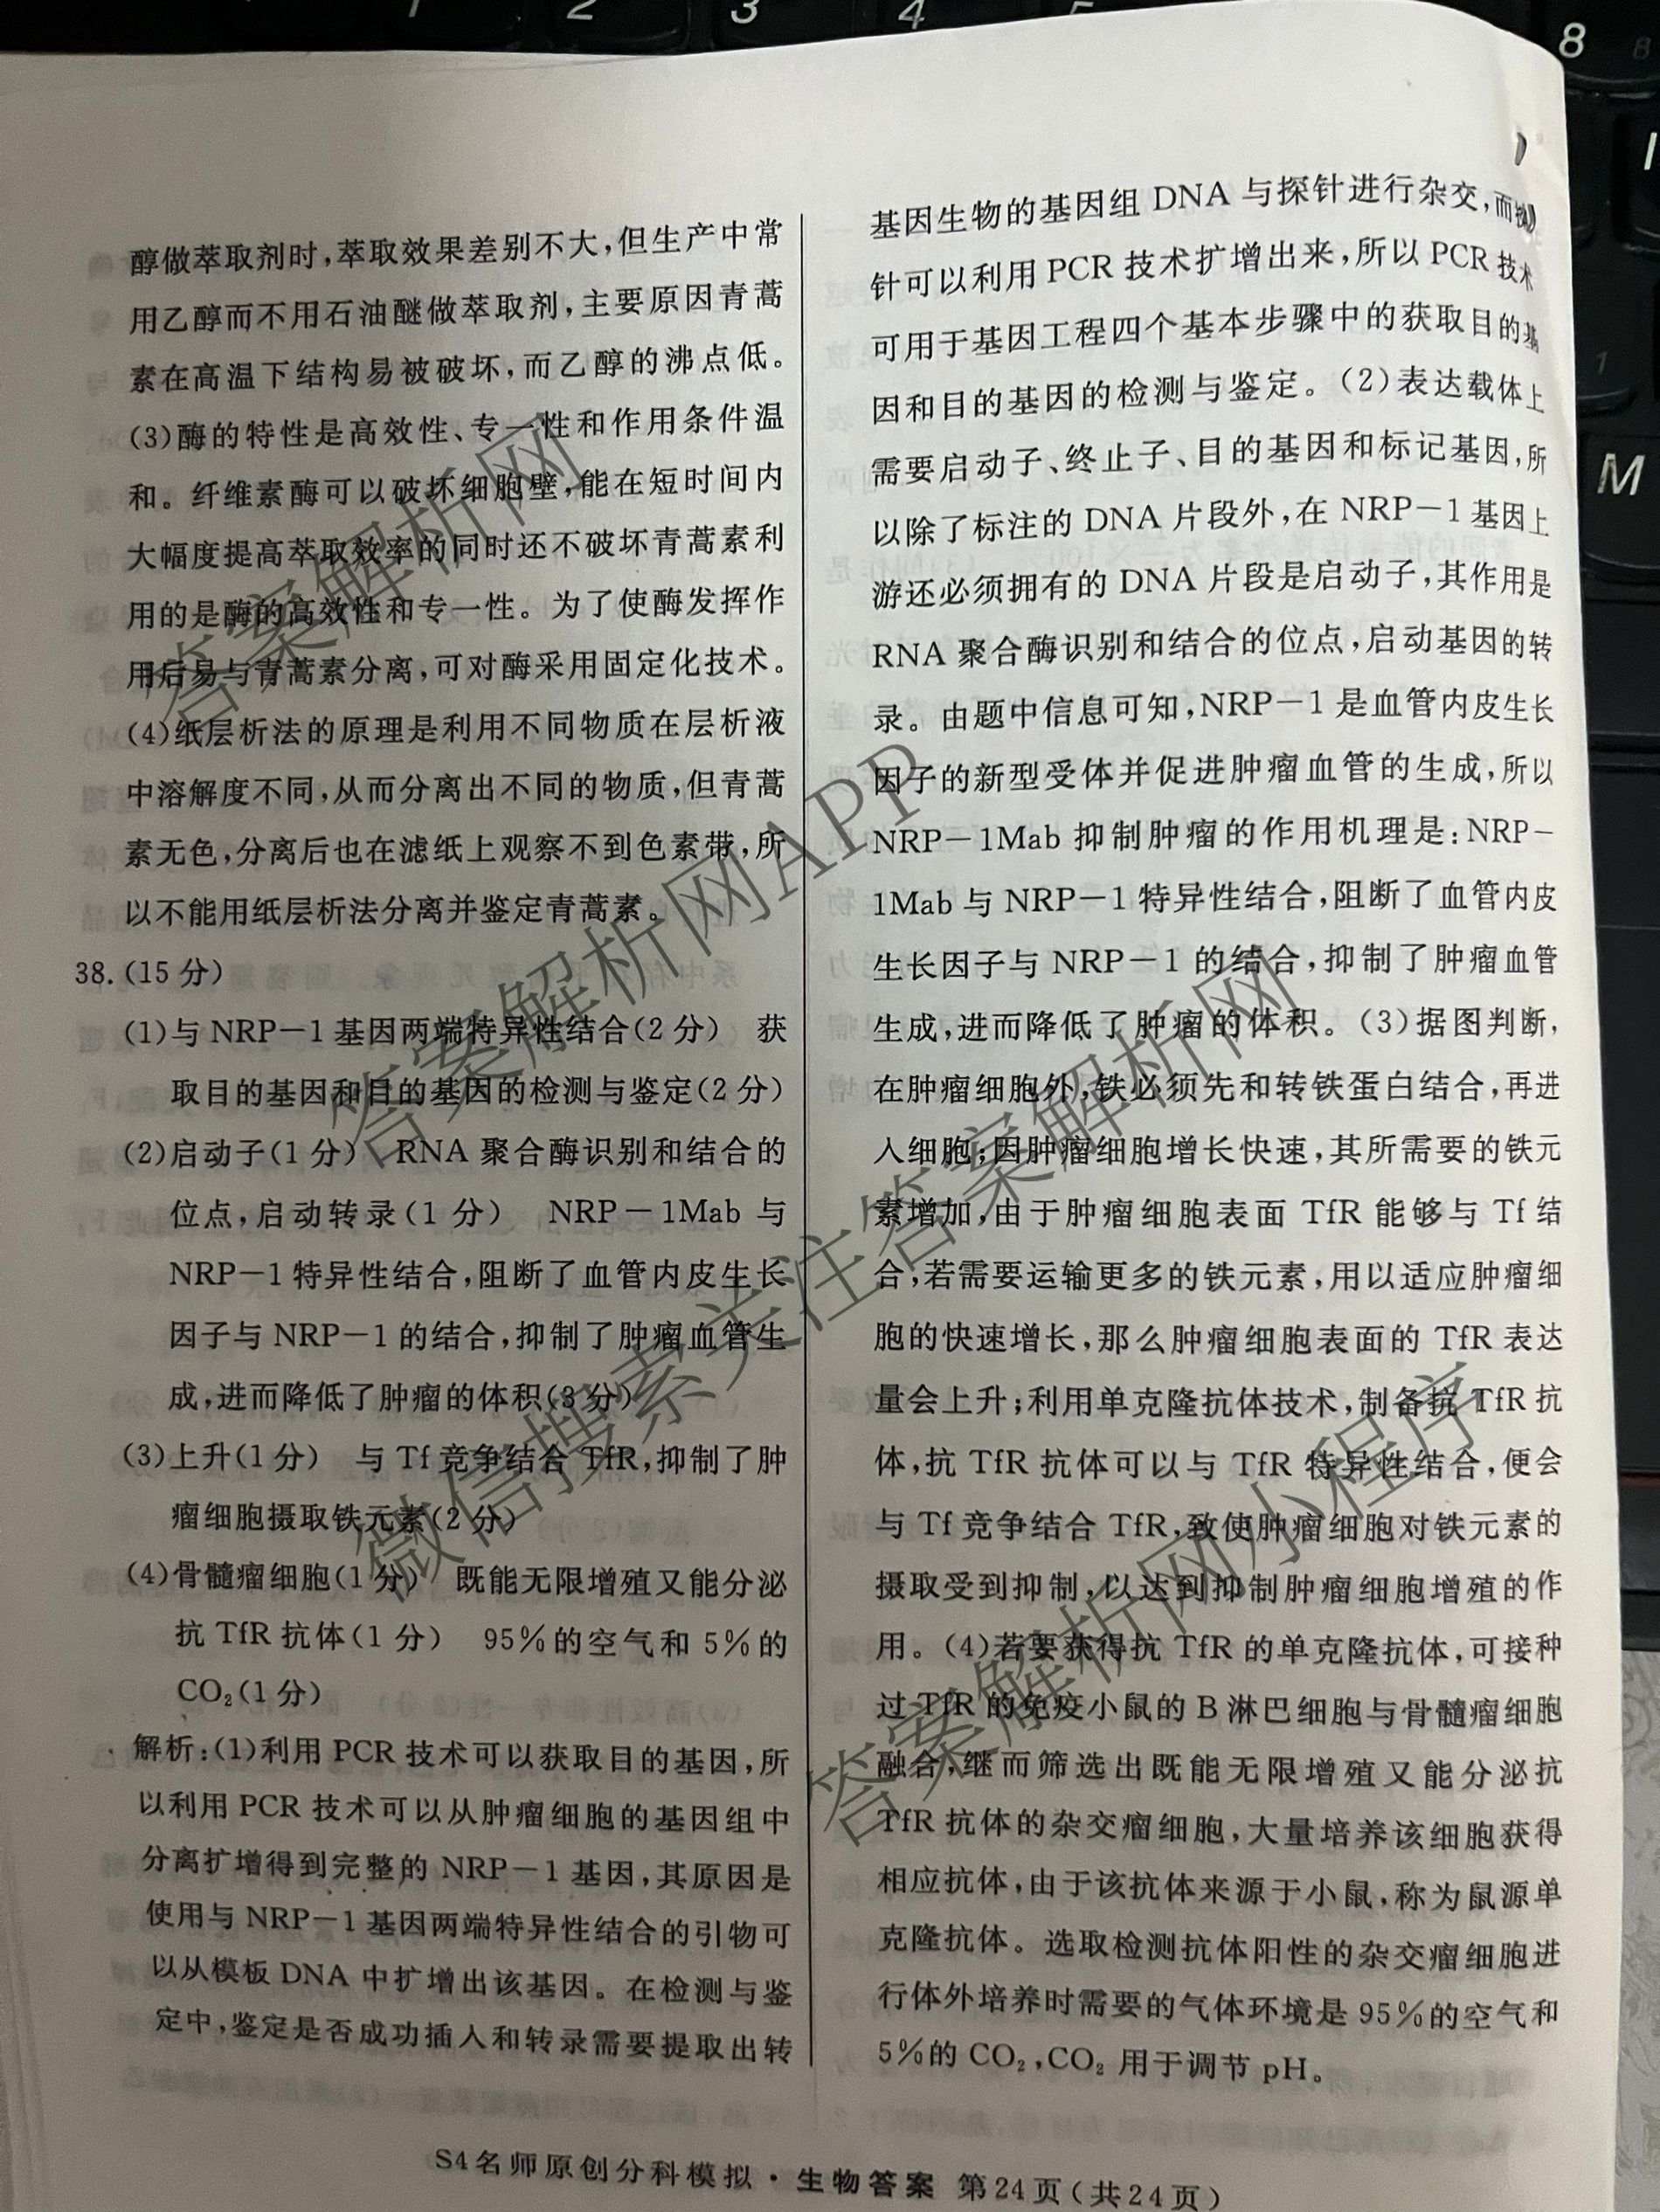 醇做萃取剂时,萃取效果差别不大,但生产中常
用乙醇而不用石油醚做萃取剂,主要原因青蒿
素在高温下结构易被破坏,而乙醇的沸点低。
(3)酶的特性是高效性、专一性和作用条件温
和。纤维素酶可以破坏细胞壁,能在短时间内
大幅度提高萃取效率的同时还不破坏青蒿素利
用的是酶的高效性和专一性。为了使酶发挥作
用后易与青蒿素分离,可对酶采用固定化技术。
(4)纸层析法的原理是利用不同物质在层析液
中溶解度不同,从而分离出不同的物质,但青蒿
素无色,分离后也在滤纸上观察不到色素带,所
以不能用纸层析法分离并鉴定青蒿素。
38.(15分)
(1)与NRP-1基因两端特异性结合(2分) 获
取目的基因和目的基因的检测与鉴定(2分)
(2)启动子(1分) RNA聚合酶识别和结合的
位点,启动转录(1分) NRP-1Mab与
NRP-1特异性结合,阻断了血管内皮生长
因子与NRP-1的结合,抑制了肿瘤血管生
成,进而降低了肿瘤的体积(3分)
(3)上升(1分) 与Tf竞争结合TfR,抑制了肿
瘤细胞摄取铁元素(2分)
(4)骨髓瘤细胞(1分) 既能无限增殖又能分泌
抗TfR抗体(1分) 95%的空气和5%的
CO₂(1分)
解析:(1)利用PCR技术可以获取目的基因,所
以利用PCR技术可以从肿瘤细胞的基因组中
分离扩增得到完整的NRP-1基因,其原因是
使用与NRP-1基因两端特异性结合的引物可
以从模板DNA中扩增出该基因。在检测与鉴
定中,鉴定是否成功插入和转录需要提取出转
基因生物的基因组DNA与探针进行杂交,而
针可以利用PCR技术扩增出来,所以PCR技术
可用于基因工程四个基本步骤中的获取目的基
因和目的基因的检测与鉴定。(2)表达载体上
需要启动子、终止子、目的基因和标记基因,所
以除了标注的DNA片段外,在NRP-1基因上
游还必须拥有的DNA片段是启动子,其作用是
RNA聚合酶识别和结合的位点,启动基因的转
录。由题中信息可知,NRP-1是血管内皮生长
因子的新型受体并促进肿瘤血管的生成,所以
NRP-1Mab抑制肿瘤的作用机理是:NRP-
1Mab与NRP-1特异性结合,阻断了血管内皮
生长因子与NRP-1的结合,抑制了肿瘤血管
生成,进而降低了肿瘤的体积。(3)据图判断,
在肿瘤细胞外,铁必须先和转铁蛋白结合,再进
入细胞;因肿瘤细胞增长快速,其所需要的铁元
素增加,由于肿瘤细胞表面TfR能够与Tf结
合,若需要运输更多的铁元素,用以适应肿瘤细
胞的快速增长,那么肿瘤细胞表面的TfR表达
量会上升;利用单克隆抗体技术,制备抗TfR抗
体,抗TfR抗体可以与TfR特异性结合,便会
与Tf竞争结合TfR,致使肿瘤细胞对铁元素的
摄取受到抑制,以达到抑制肿瘤细胞增殖的作
用。(4)若要获得抗TfR的单克隆抗体,可接种
过TfR的免疫小鼠的B淋巴细胞与骨髓瘤细胞
融合,继而筛选出既能无限增殖又能分泌抗
TfR抗体的杂交瘤细胞,大量培养该细胞获得
相应抗体,由于该抗体来源于小鼠,称为鼠源单
克隆抗体。选取检测抗体阳性的杂交瘤细胞进
行体外培养时需要的气体环境是95%的空气和
5%的CO₂,CO₂用于调节pH。
S4名师原创分科模拟·生物答案 第24页(共24页)
答案解析网
答案解析网APP
微信搜索关注答案解析网
答案解析网小程序
1
2
3
4
8
M